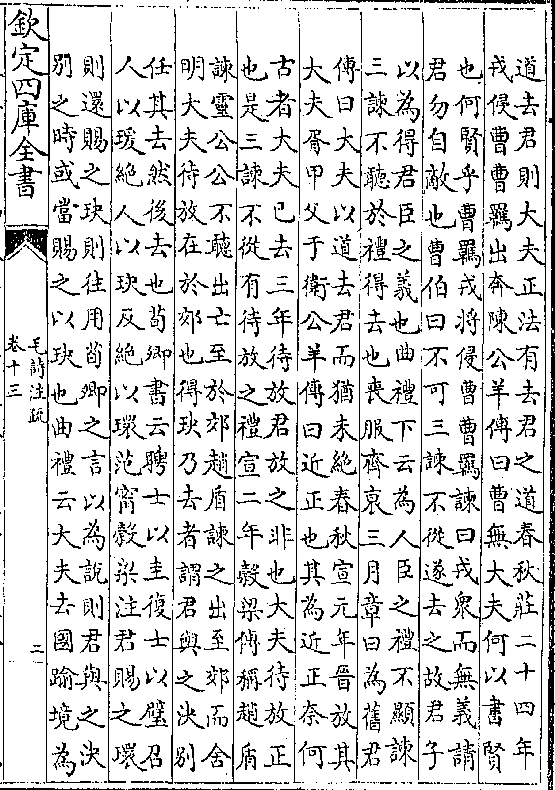 道去君則大夫正法有去君之道春秋莊二十四年
戎侵曹曹羈出奔陳公羊傳曰曹無大夫何以書賢
也何賢乎曹羈戎將侵曹曹羈諫曰戎衆而無義請
君勿自敵也曹伯曰不可三諫不從遂去之故君子
以為得君臣之義也曲禮下云為人臣之禮不顯諫
三諫不聽於禮得去也喪服齊衰三月章曰為舊君
傳曰大夫以道去君而猶未絶春秋宣元年晉放其
大夫胥甲父于衛公羊傳曰近正也其為近正奈何
古者大夫已去三年待放君放之非也大夫待放正
也是三諫不從有待放之禮宣二年榖梁傳稱趙盾
諫靈公公不聽出亡至於郊趙盾諫之出至郊而舍
明大夫待放在於郊也得玦乃去者謂君與之決别
任其去然後去也荀卿書云聘士以圭復士以璧召
人以瑗絶人以玦反絶以環范甯榖梁注君賜之環
則還賜之玦則往用荀卿之言以為説則君與之決
别之時或當賜之以玦也曲禮云大夫去國踰境為
欽定四庫全書
毛詩注疏
卷十三
三